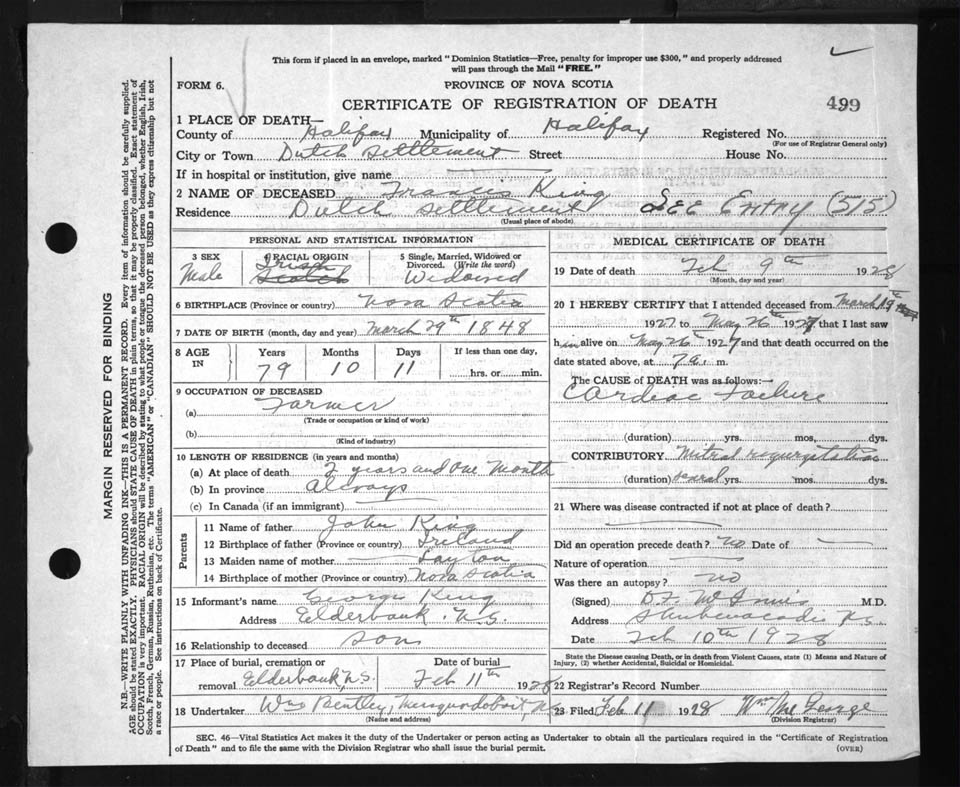 This form if placed in an envelope, marked "Dominion Statistics—Free, penalty for improper use $300," and properly addressed
will pass through the Mail "FREE."
FORM 6.
PROVINCE OF NOVA SCOTIA
CERTIFICATE OF REGISTRATION OF DEATH
499
1 PLACE OF DEATH—
County of Halifax Municipality of Halifax Registered No.
(For use of Registrar General only)
City or Town Dutch Settlement Street House No.
If in hospital or institution, give name
2 NAME OF DECEASED Francis King
Residence Dutch Settlement SEE Entry (515)
(Usual place of abode)
PERSONAL AND STATISTICAL INFORMATION
3 SEX
Male
4 RACIAL ORIGIN
Irish
Scotch
5 Single, Married, Widowed or
Divorced. (Write the word)
Widowed
6 BIRTHPLACE (Province or country) Nova Scotia
7 DATE OF BIRTH (month, day and year) March 29th 1848
8 AGE
IN
Years Months Days If less than one day,
79 10 11 hrs. or min.
9 OCCUPATION OF DECEASED
(a) Farmer
(Trade or occupation or kind of work)
(b)
(Kind of industry)
10 LENGTH OF RESIDENCE (in years and months)
(a) At place of death 2 years and one Month
(b) In province always
(c) In Canada (if an immigrant)
Parents
11 Name of father John King
12 Birthplace of father (Province or country) Ireland
13 Maiden name of mother
14 Birthplace of mother (Province or country) Nova Scotia
15 Informant's name George King
Address Elderbank N.S.
16 Relationship to deceased son
17 Place of burial, cremation or Date of burial
removal Elderbank, N.S. Feb 11th 1928
18 Undertaker Wm Bentley, Musquodoboit, N.S.
(Name and address)
MEDICAL CERTIFICATE OF DEATH
19 Date of death Feb 9th 1928
(Month, day and year)
20 I HEREBY CERTIFY that I attended deceased from March 19th
1927 to May 26th 1927 that I last saw
him alive on May 26th 1927 and that death occurred on the
date stated above, at 7 a. m.
The CAUSE of DEATH was as follows:—
Cardiac Failure
(duration) yrs. mos, dys.
CONTRIBUTORY Mitral regurgitation
(duration) several yrs. mos. dys.
21 Where was disease contracted if not at place of death?
Did an operation precede death? no Date of
Nature of operation
Was there an autopsy? no
(Signed) M.D.
Address Shubenacadie N.S.
Date Feb 10th 1928
State the Disease causing Death, or in death from Violent Causes, state (1) Means and Nature of
Injury, (2) whether Accidental, Suicidal or Homicidal.
22 Registrar's Record Number
23 Filed Feb 11 1928 Wm McGeorge
(Division Registrar)
SEC. 46—Vital Statistics Act makes it the duty of the Undertaker or person acting as Undertaker to obtain all the particulars required in the "Certificate of Registration
of Death" and to file the same with the Division Registrar who shall issue the burial permit.
(OVER)
MARGIN RESERVED FOR BINDING
N.B—WRITE PLAINLY WITH UNFADING INK—THIS IS A PERMANENT RECORD. Every item of information should be carefully supplied.
AGE should be stated EXACTLY. PHYSICIANS should STATE CAUSE OF DEATH in plain terms, so that it may be properly classified. Exact statement of
OCCUPATION is very important. RACIAL ORIGIN will be described by stating to what people or tongue the deceased person belonged, whether English, Irish,
Scotch, French, German, Russian, Ruthenian, etc. The terms "AMERICAN" or "CANADIAN" SHOULD NOT BE USED as they express citizenship but not
a race or people. See instructions on back of Certificate.